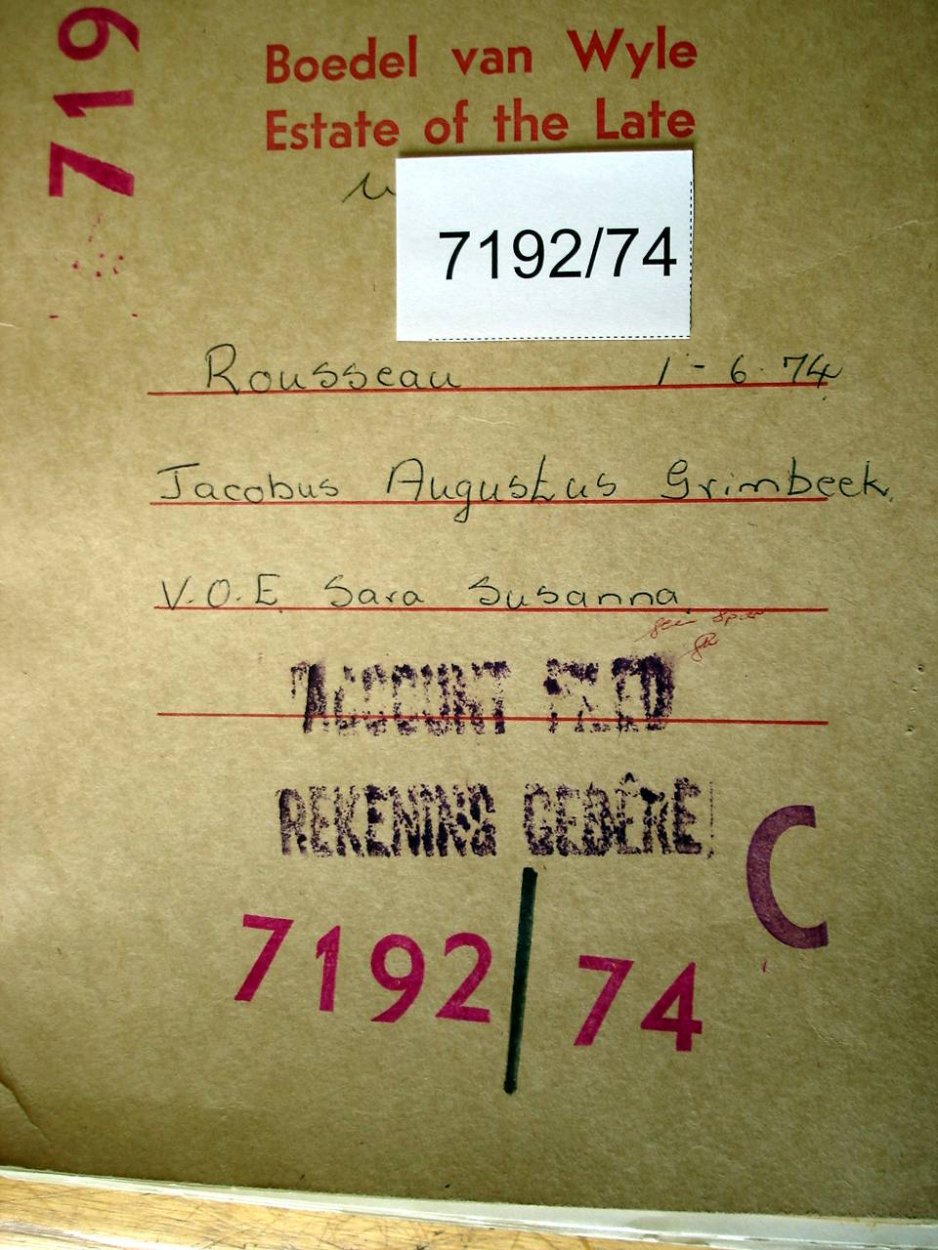 719
Boedel van Wyle
Estate of the Late
7192/74
Rousseau 1-6-74
Jacobus Augustus Grimbeek
V.O.E. Sara Susanna
ACCOUNT FILED
REKENING GEDÊRE
C
7192/74